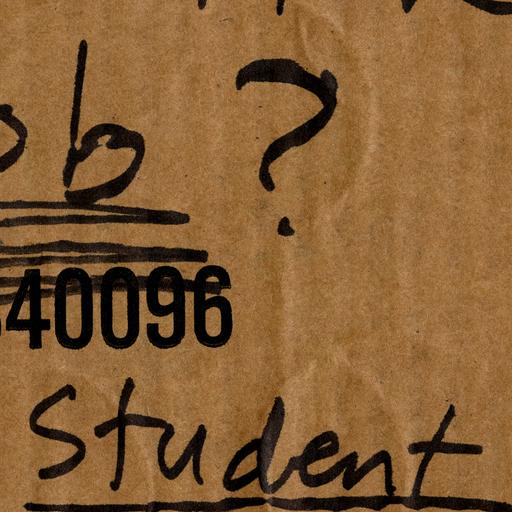 ob ?
40096
Student